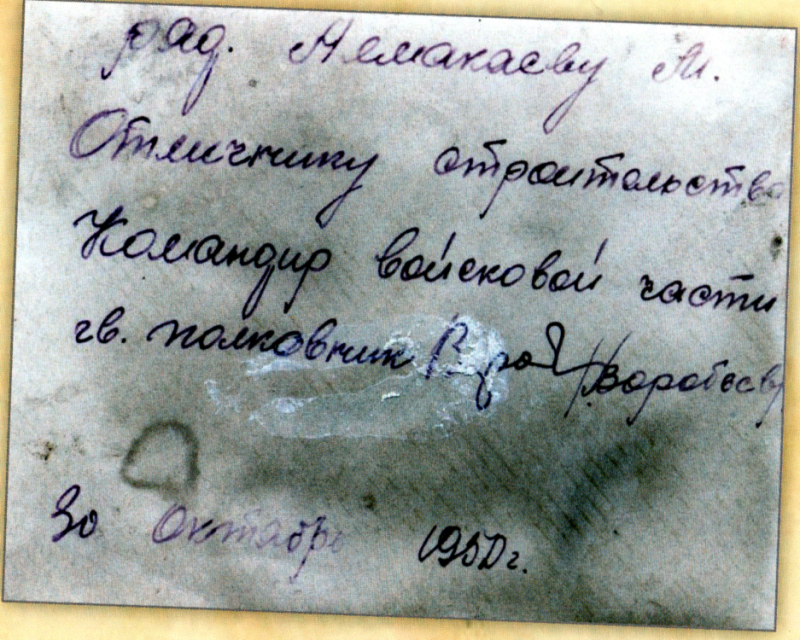 ряд. Ялмакаеву М.
Отличнику строительства
Командир войсковой части
гв. полковник /Воробьев/
30 Октябрь 1950 г.